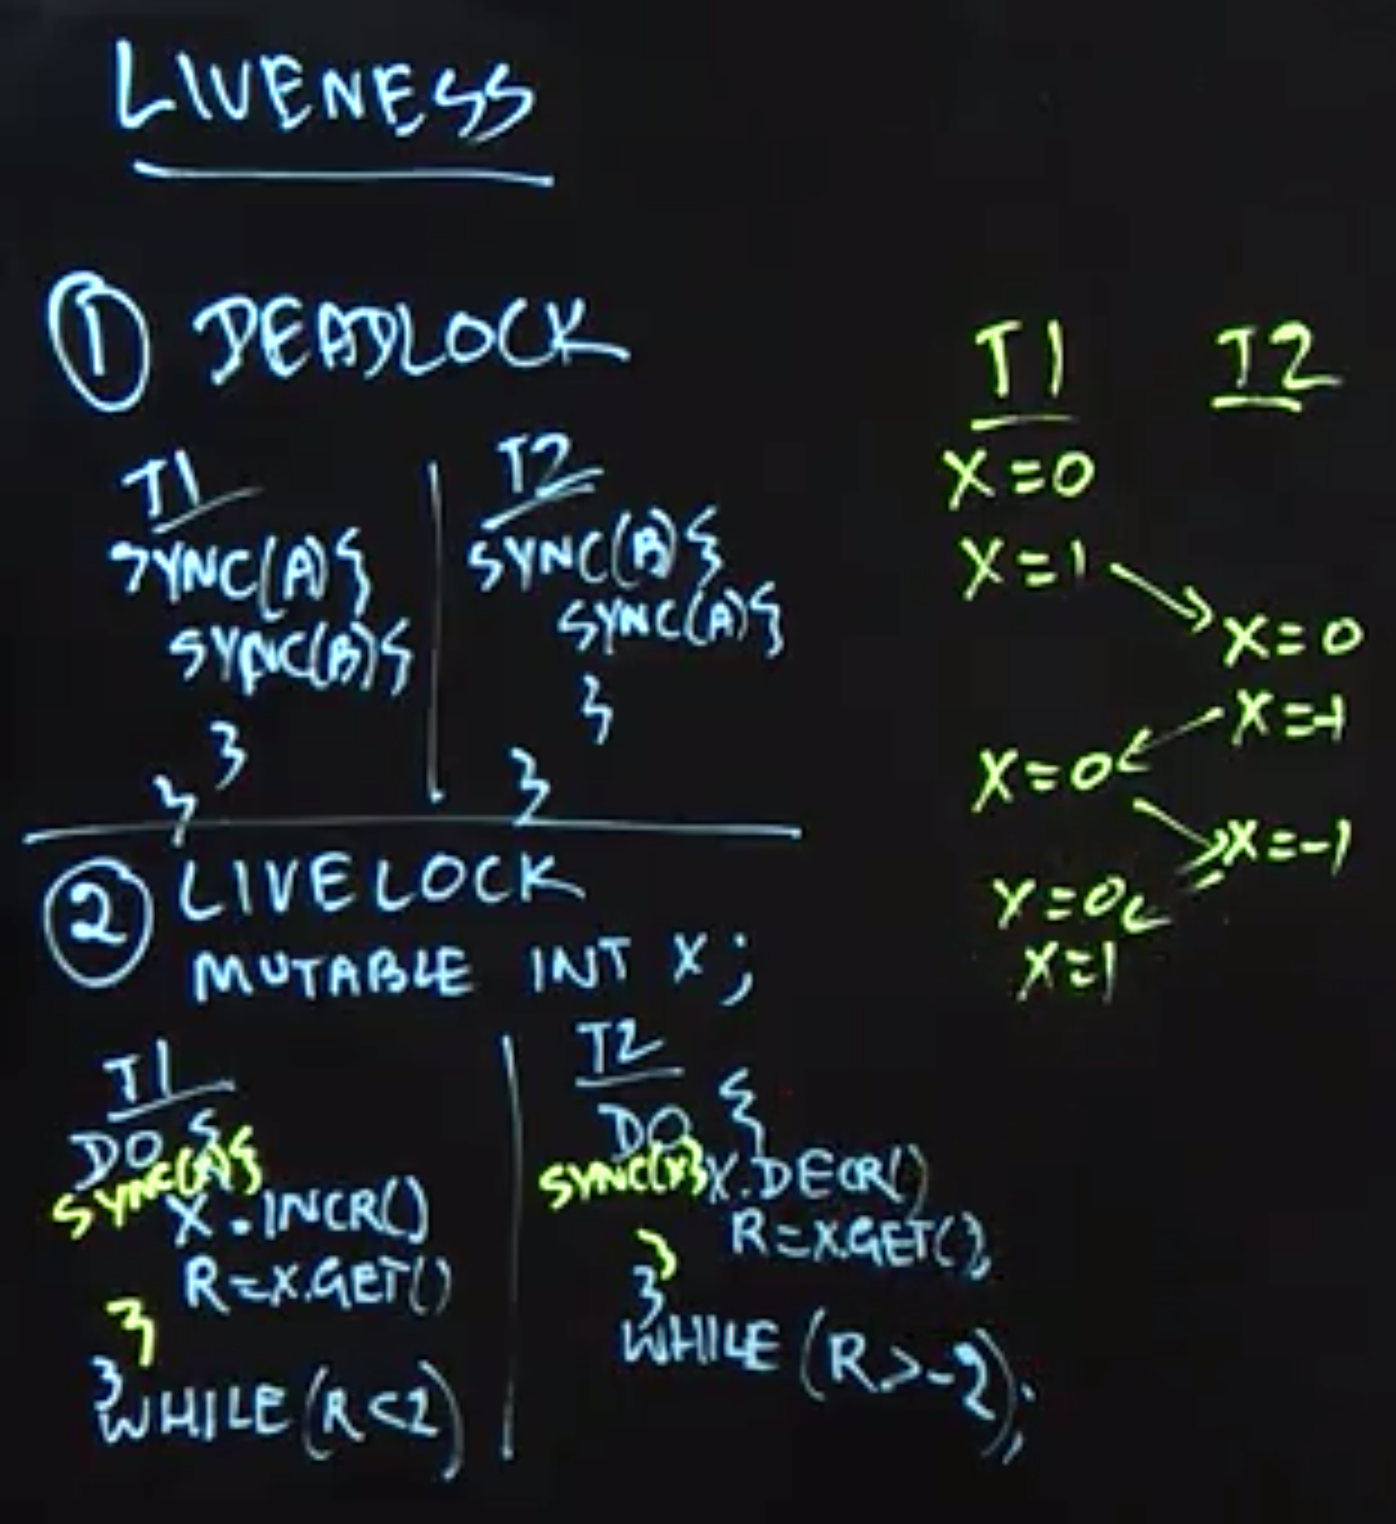 LIVENESS
① DEADLOCK
T1
SYNC(A){
SYNC(B){
}
}
T2
SYNC(B){
SYNC(A){
}
}
② LIVELOCK
MUTABLE INT X;
T1
DO {
SYNC(A){
X.INCR()
R=X.GET()
}
}
WHILE (R<2)
T2
DO {
SYNC(X){ X.DECR()
R=X.GET();
}
}
WHILE (R>-2);
T1 T2
X=0
X=1
X=0
X=-1
X=0
X=-1
X=0
X=1